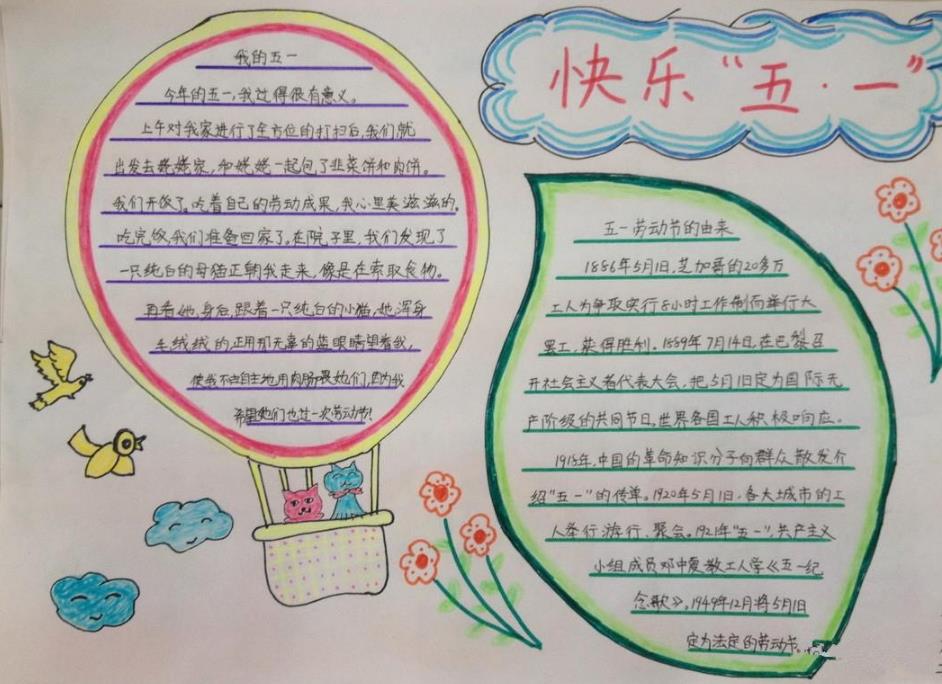 快乐“五·一”
我的五一
今年的五一,我过得很有意义。
上午对我家进行了全方位的打扫后,我们就
出发去姥姥家,和姥姥一起包了韭菜饼和肉饼。
我们开饭了。吃着自己的劳动成果,我心里美滋滋的。
吃完饭,我们准备回家了。在院子里,我们发现了
一只纯白的母猫正朝我走来,像是在索取食物。
再看她,身后跟着一只纯白的小猫,她浑身
毛绒绒的正用那无辜的蓝眼睛望着我,
使我不由自主地用肉肠喂她们,因为我
希望她们也过一次劳动节!
五一劳动节的由来
1886年5月1日,芝加哥的20多万
工人为争取实行8小时工作制而举行大
罢工,获得胜利。1889年7月14日,在巴黎召
开社会主义者代表大会,把5月1日定为国际无
产阶级的共同节日,世界各国工人积极响应。
1915年,中国的革命知识分子向群众散发介
绍“五一”的传单。1920年5月1日,各大城市的工
人举行游行、聚会。1921年“五一”,共产主义
小组成员邓中夏教工人学《五一纪
念歌》。1949年12月将5月1日
定为法定的劳动节。